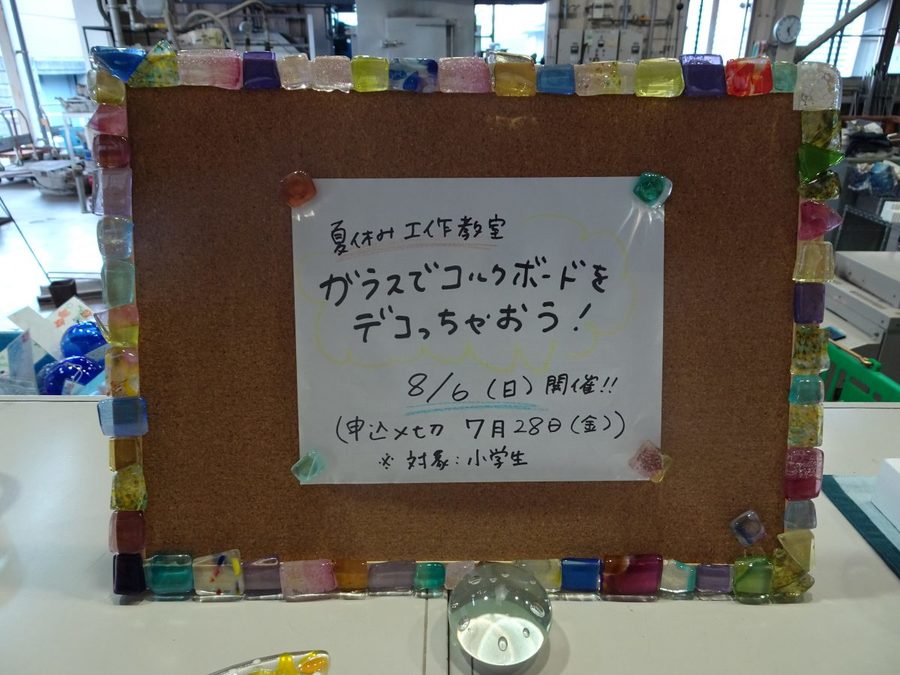 夏休み工作教室
ガラスでコルクボードを
デコっちゃおう!
8/6(日)開催!!
(申込〆切 7月28日(金))
※対象:小学生